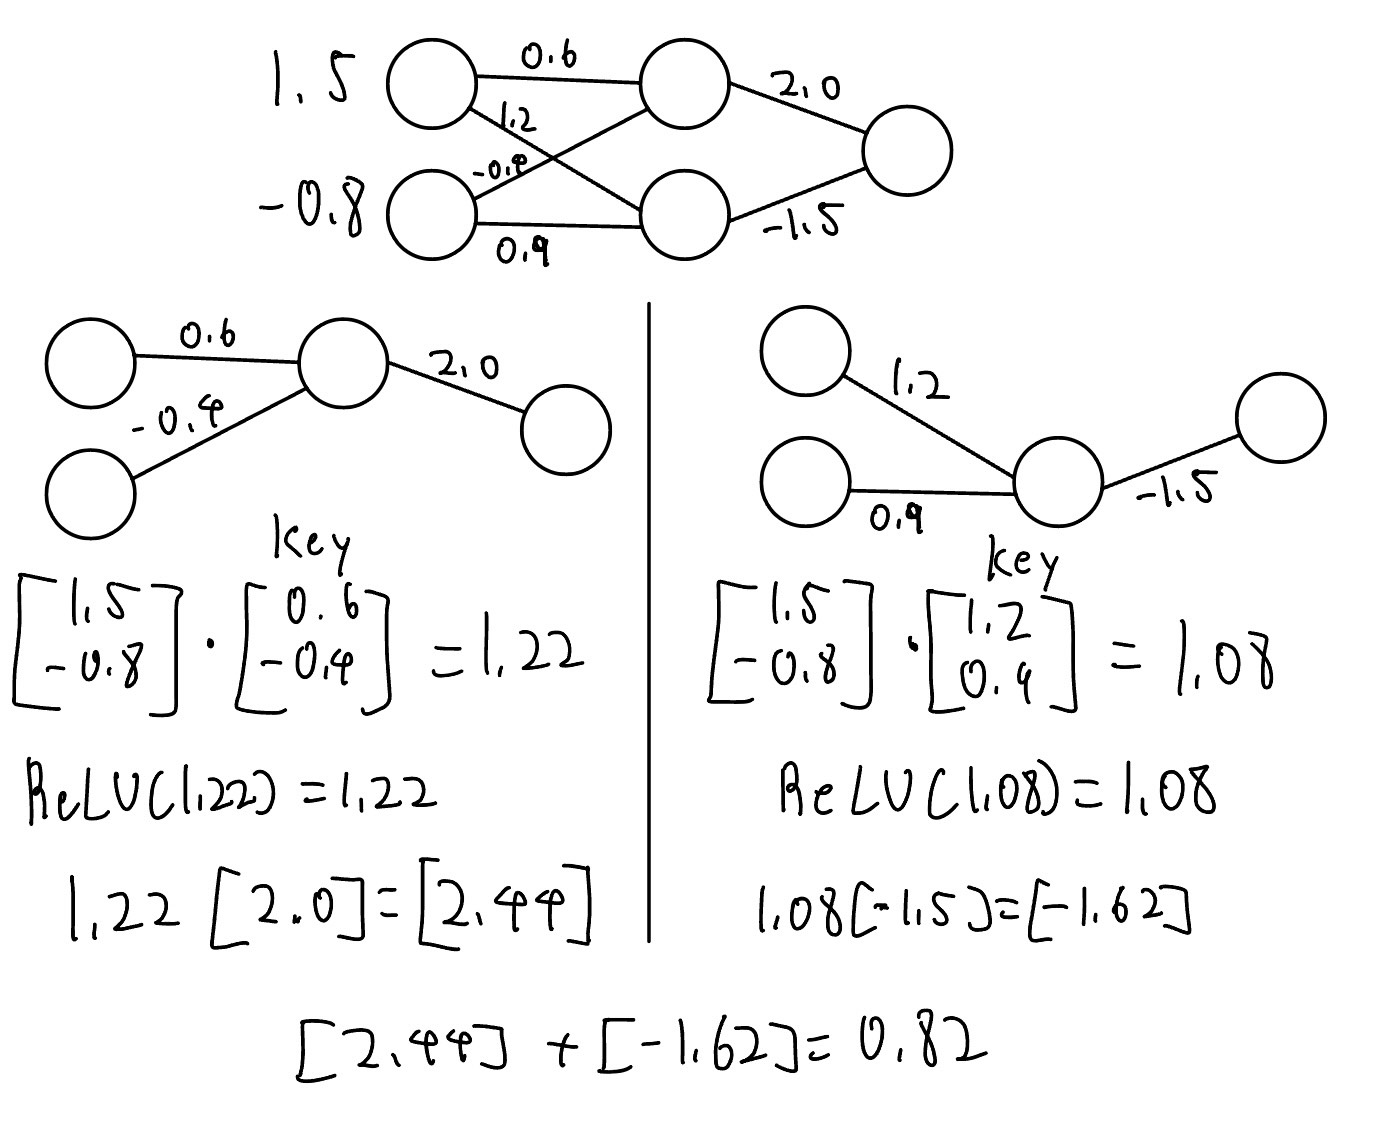 0.6
1.5
2.0
1.2
-0.4
-0.8
-1.5
0.9
0.6
2.0
-0.4
1.2
-1.5
0.9
key
[1.5 -0.8] · [0.6 -0.4] = 1.22
ReLU(1.22) = 1.22
1.22 [2.0] = [2.44]
key
[1.5 -0.8] · [1.2 0.9] = 1.08
ReLU(1.08) = 1.08
1.08[-1.5] = [-1.62]
[2.44] + [-1.62] = 0.82